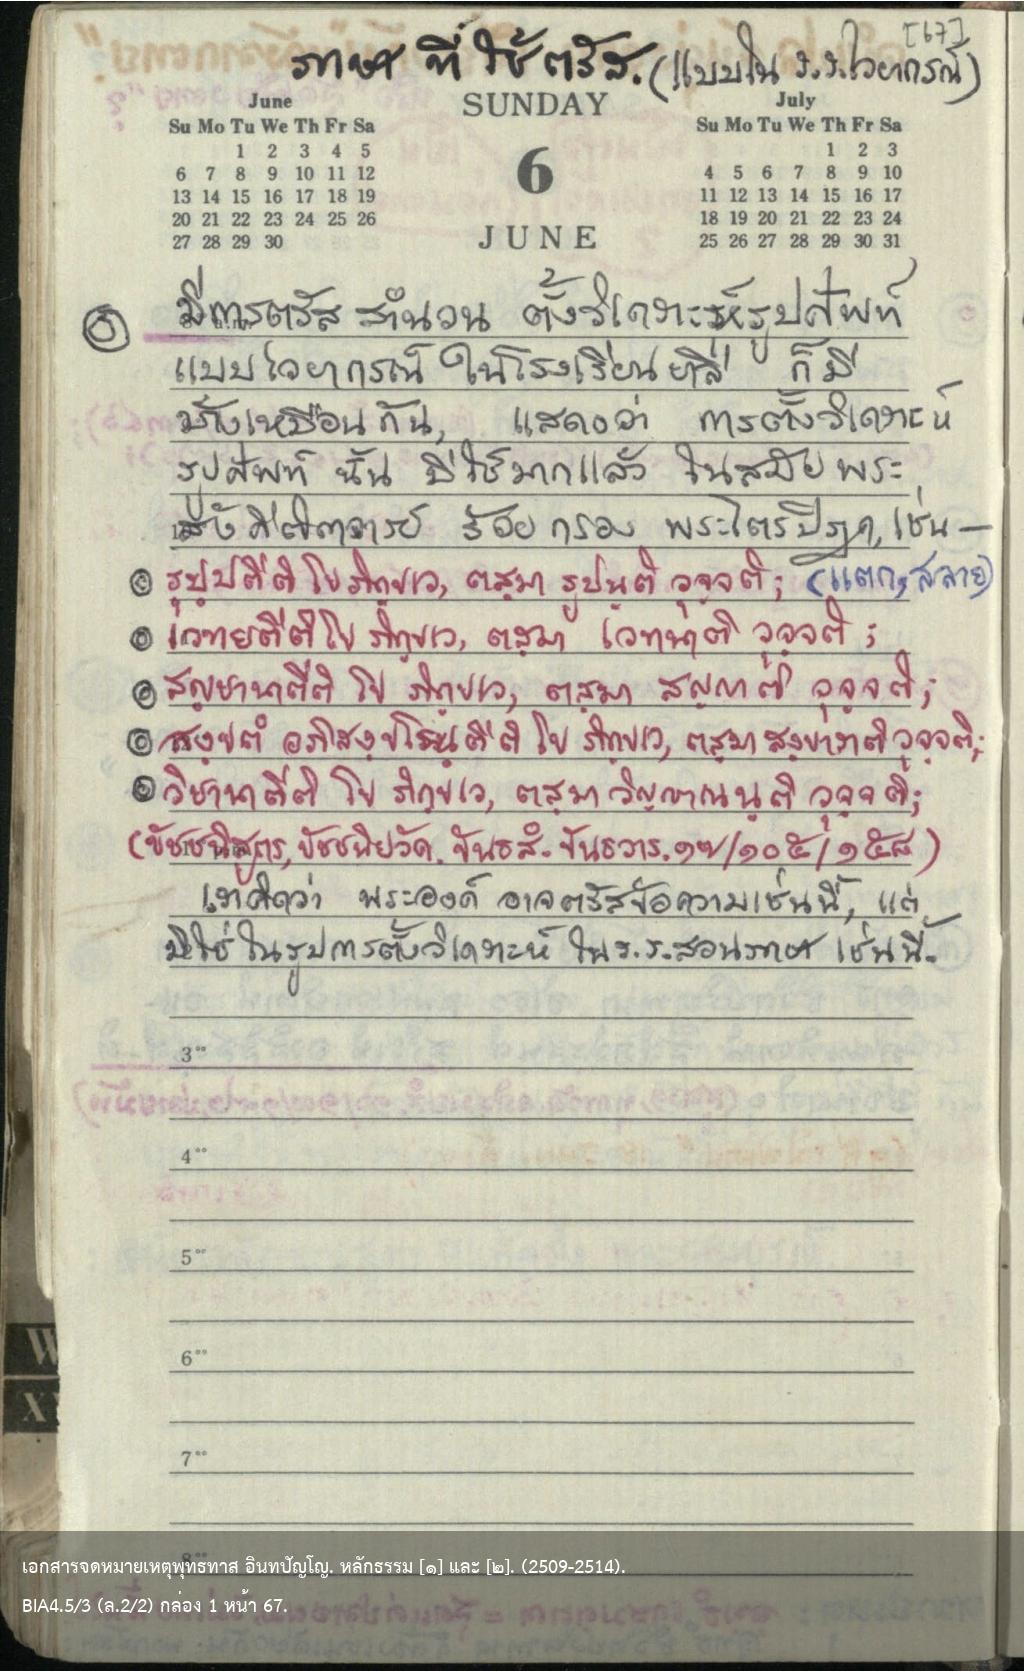 [67]
ภาษา ที่ใช้ตรัส. (แบบใน ร.ร.ไวยากรณ์)
June SUNDAY July
Su Mo Tu We Th Fr Sa Su Mo Tu We Th Fr Sa
1 2 3 4 5 1 2 3
6 7 8 9 10 11 12 6 4 5 6 7 8 9 10
13 14 15 16 17 18 19 11 12 13 14 15 16 17
20 21 22 23 24 25 26 18 19 20 21 22 23 24
27 28 29 30 JUNE 25 26 27 28 29 30 31
มีการตรัส สำนวน ตั้งวิเคราะห์รูปศัพท์
แบบไวยากรณ์ ในโรงเรียนบาลี ก็มี
บ้างเหมือนกัน, แสดงว่า การตั้งวิเคราะห์
รูปศัพท์ นั้น มีใช้มากแล้ว ในสมัยพระ
สังคีติกาจารย์ ร้อยกรอง พระไตรปิฎก, เช่น —
รุปฺปตีติ โข ภิกฺขเว, ตสฺมา รูปนฺติ วุจฺจติ; (แตก, สลาย)
เวทยตีติ โข ภิกฺขเว, ตสฺมา เวทนาติ วุจฺจติ;
สญฺชานาตีติ โข ภิกฺขเว, ตสฺมา สญฺญาติ วุจฺจติ;
สงฺขตํ อภิสงฺขโรนฺตีติ โข ภิกฺขเว, ตสฺมา สงฺขาราติ วุจฺจติ;
วิชานาตีติ โข ภิกฺขเว, ตสฺมา วิญฺญาณนฺติ วุจฺจติ;
(ขัชชนิสูตร, ขัชชนิยวัค. ขันธสํ. ขันธวาร. ๑๗/๑๐๕/๑๕๘)
เราคิดว่า พระองค์ อาจตรัสข้อความเช่นนี้, แต่
มิใช่ ในรูปการตั้งวิเคราะห์ ใน ร.ร.สอนภาษา เช่นนี้.
3⁰⁰
4⁰⁰
5⁰⁰
6⁰⁰
7⁰⁰
เอกสารจดหมายเหตุพุทธทาส อินทปัญโญ. หลักธรรม [๑] และ [๒]. (2509-2514).
BIA4.5/3 (ล.2/2) กล่อง 1 หน้า 67.